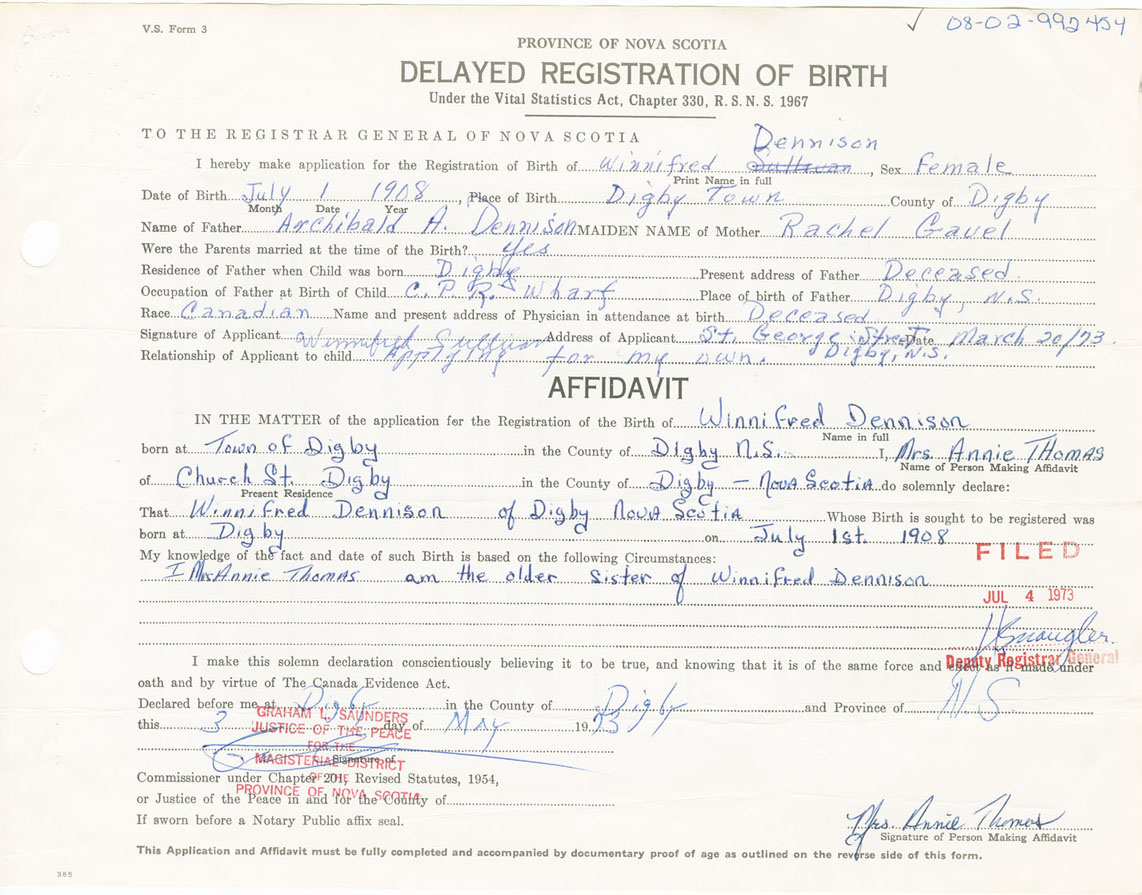 V.S. Form 3
✓ 08-02-992454
PROVINCE OF NOVA SCOTIA
DELAYED REGISTRATION OF BIRTH
Under the Vital Statistics Act, Chapter 330, R. S. N. S. 1967
TO THE REGISTRAR GENERAL OF NOVA SCOTIA
Dennison
I hereby make application for the Registration of Birth of Winnifred Sullivan, Sex Female
Print Name in full
Date of Birth July 1 1908, Place of Birth Digby Town County of Digby
Month Date Year
Name of Father Archibald A. Dennison MAIDEN NAME of Mother Rachel Gavel
Were the Parents married at the time of the Birth? yes
Residence of Father when Child was born Digby Present address of Father Deceased
Occupation of Father at Birth of Child C. P. R. Wharf Place of birth of Father Digby, N.S.
Race Canadian Name and present address of Physician in attendance at birth Deceased
Signature of Applicant Winnifred Sullivan Address of Applicant St. George Street Date March 20/73
Relationship of Applicant to child Applying for my own. Digby, N.S.
AFFIDAVIT
IN THE MATTER of the application for the Registration of the Birth of Winnifred Dennison
Name in full
born at Town of Digby in the County of Digby N.S. I, Mrs. Annie THomas
Name of Person Making Affidavit
of Church St. Digby in the County of Digby - Nova Scotia do solemnly declare:
Present Residence
That Winnifred Dennison of Digby Nova Scotia Whose Birth is sought to be registered was
born at Digby on July 1st. 1908
My knowledge of the fact and date of such Birth is based on the following Circumstances:
FILED
I Mrs Annie Thomas am the older sister of Winnifred Dennison
JUL 4 1973
I make this solemn declaration conscientiously believing it to be true, and knowing that it is of the same force and effect as if made under
Deputy Registrar General
oath and by virtue of The Canada Evidence Act.
Declared before me at Digby in the County of Digby and Province of N S
this 3 day of May 1973
GRAHAM L. SAUNDERS
JUSTICE OF THE PEACE
FOR THE
MAGISTERIAL DISTRICT
OF THE
PROVINCE OF NOVA SCOTIA
Signature of
Commissioner under Chapter 201, Revised Statutes, 1954,
or Justice of the Peace in and for the County of
If sworn before a Notary Public affix seal.
Mrs. Annie Thomas
Signature of Person Making Affidavit
This Application and Affidavit must be fully completed and accompanied by documentary proof of age as outlined on the reverse side of this form.
385